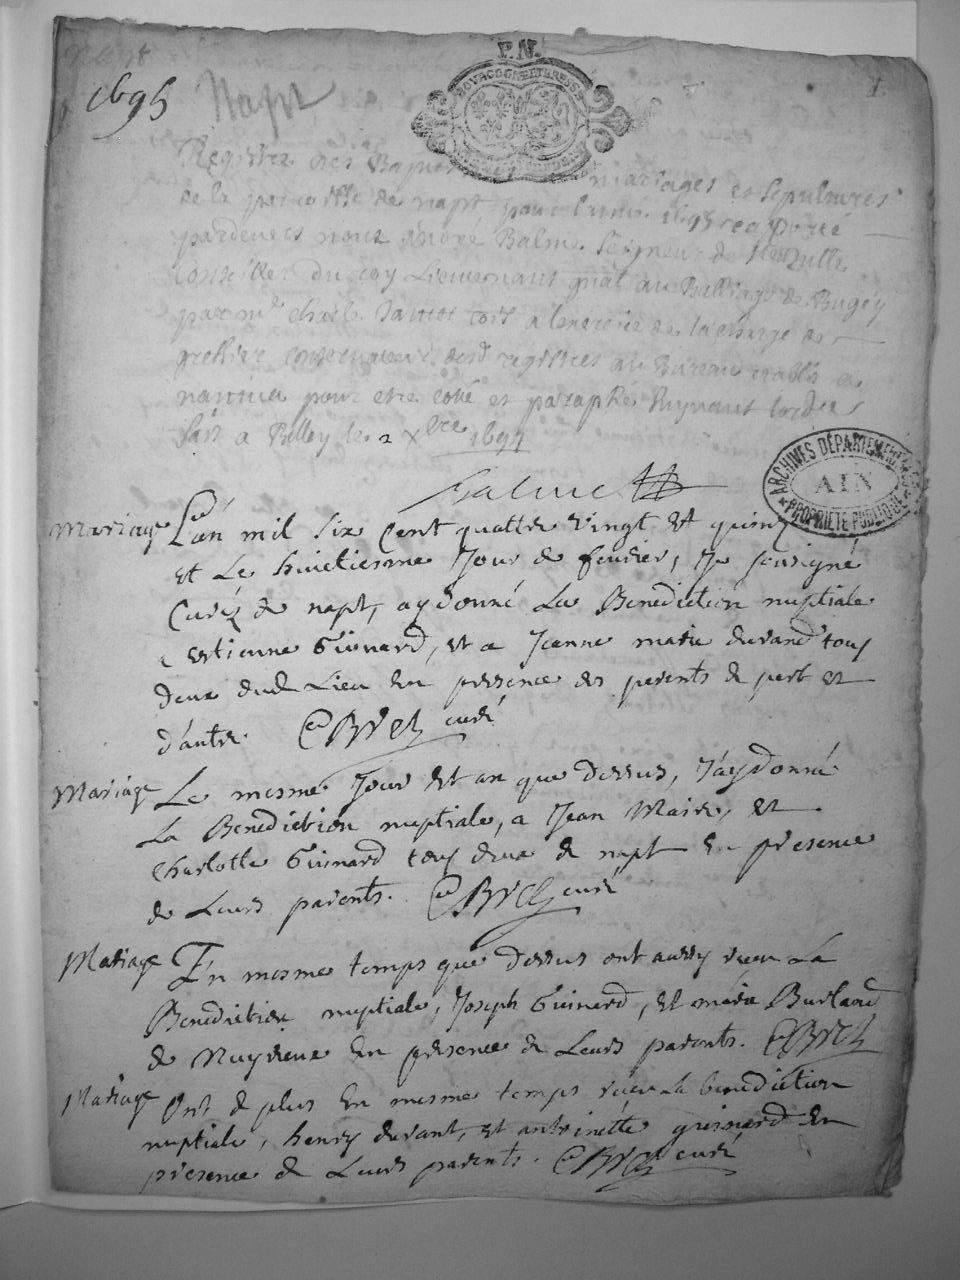 P.N.
1
1695 Napt
Registre des Bapt mariages et sepultures
de la parroisse de napt pour l'année 1695 raporté
pardevers nous André Balme seigneur de Ste Julle
Conseiller du roy Lieutenant gnal au Balliage de Bugey
par mr charle Jantet à l'exercice de la charge de
greffier conservateur desd registres au Bureau establi a
nantua pour estre cotté et paraphé suyvant lordre
fait a Belley le 2 xbre 1694
Balme
ARCHIVES DÉPARTEMENTALES
AIN
PROPRIÉTÉ PUBLIQUE
Mariage L'an mil six Cent quattre vingt et quinz
et Le huictiesme Jour de feuvrier, Je sousigné
Curéz de napt, ay donné La Benediction nuptiale
a estienne Guinard, et a Jeanne marie durand tous
deux dud Lieu en presence des parents de part et
d'autre. CBrez curé
Mariage Le mesme Jour et an que dessus, J'ay donné
La Benediction nuptiale, a Jean Maire, et
Charlotte Guinard tous deux de napt en presence
de Leurs parents. CBrez curé
Mariage En mesme temps que dessus ont aussy receu La
Benediction nuptiale, Joseph Guinard, et marie Burland
de Nuyrieue en presence de Leurs parents. CBrez
Mariage Ont de plus en mesme temps receu la benediction
nuptiale, henry durant, et antoinette guinard en
presence de Leurs parents. CBrez curé